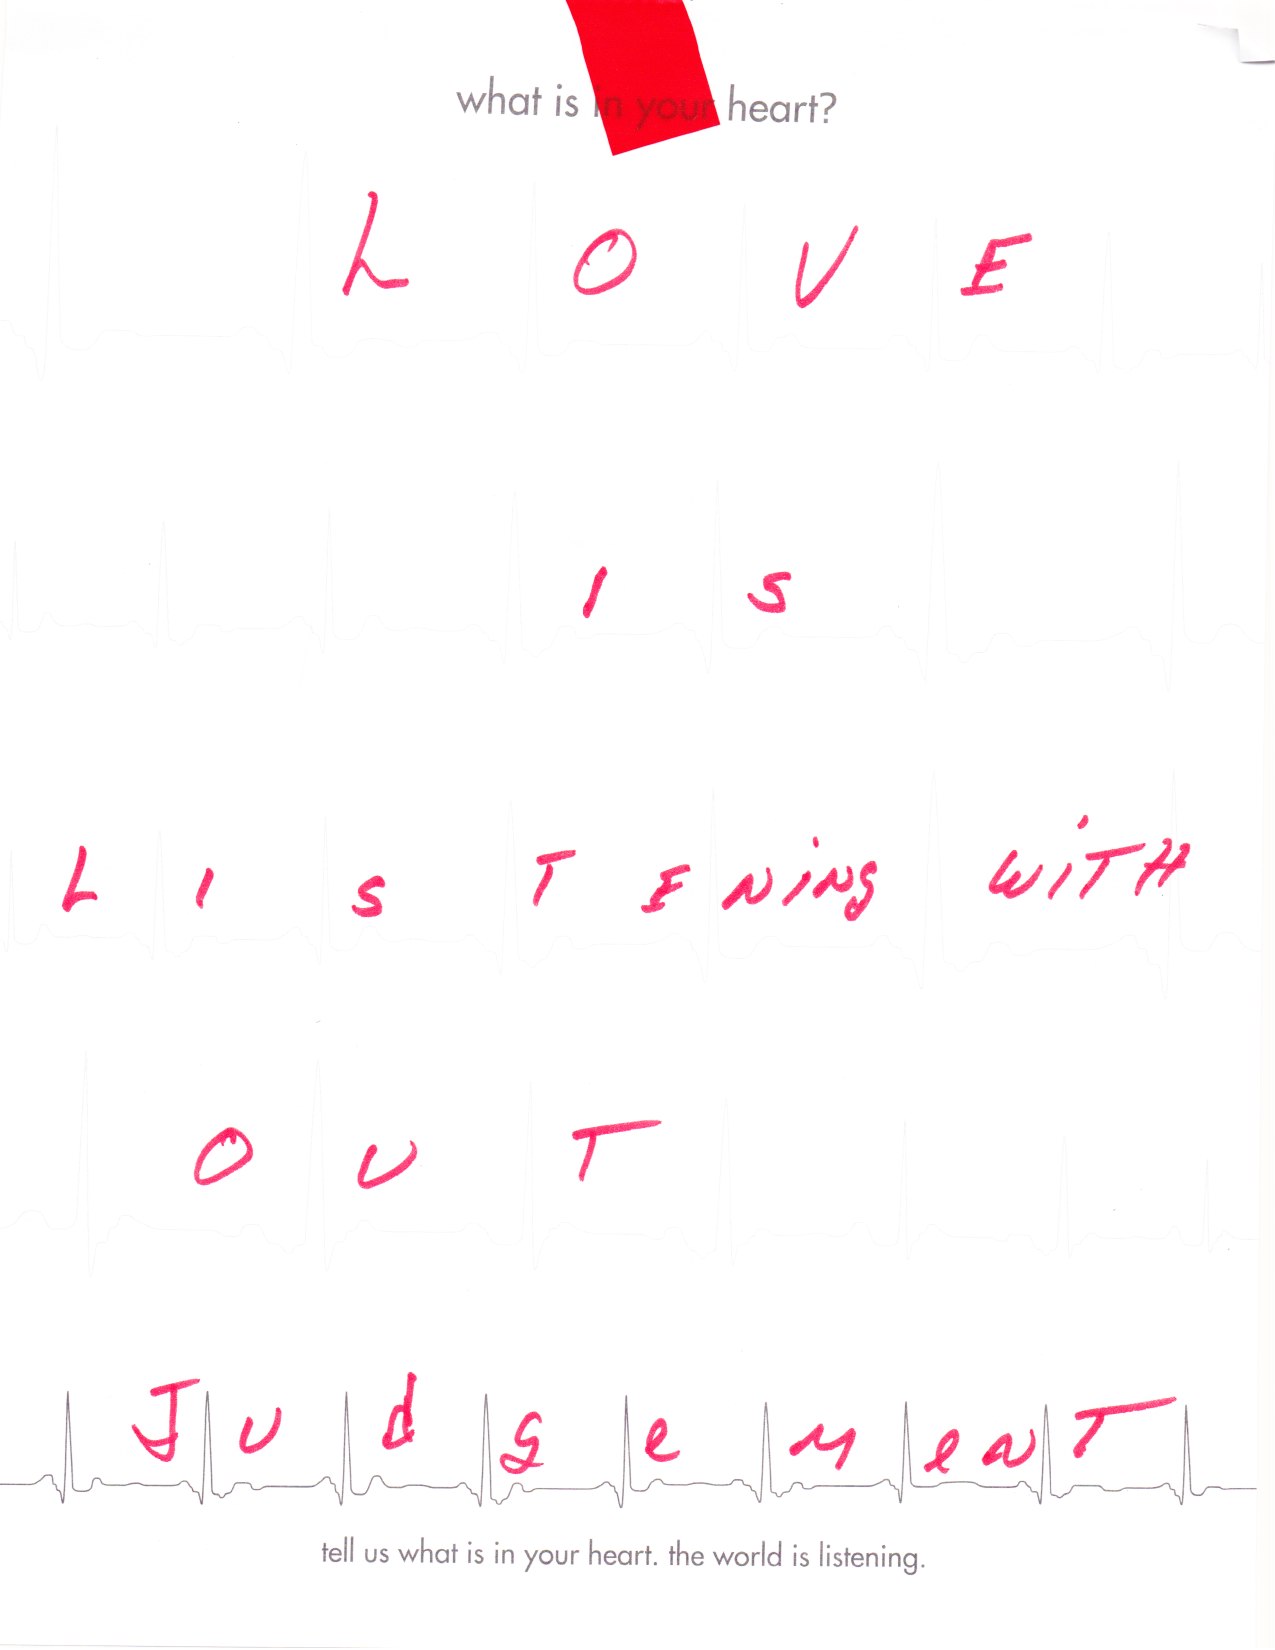 what is in your heart?
LOVE
IS
LISTENING WITH
OUT
JudgemenT
tell us what is in your heart. the world is listening.